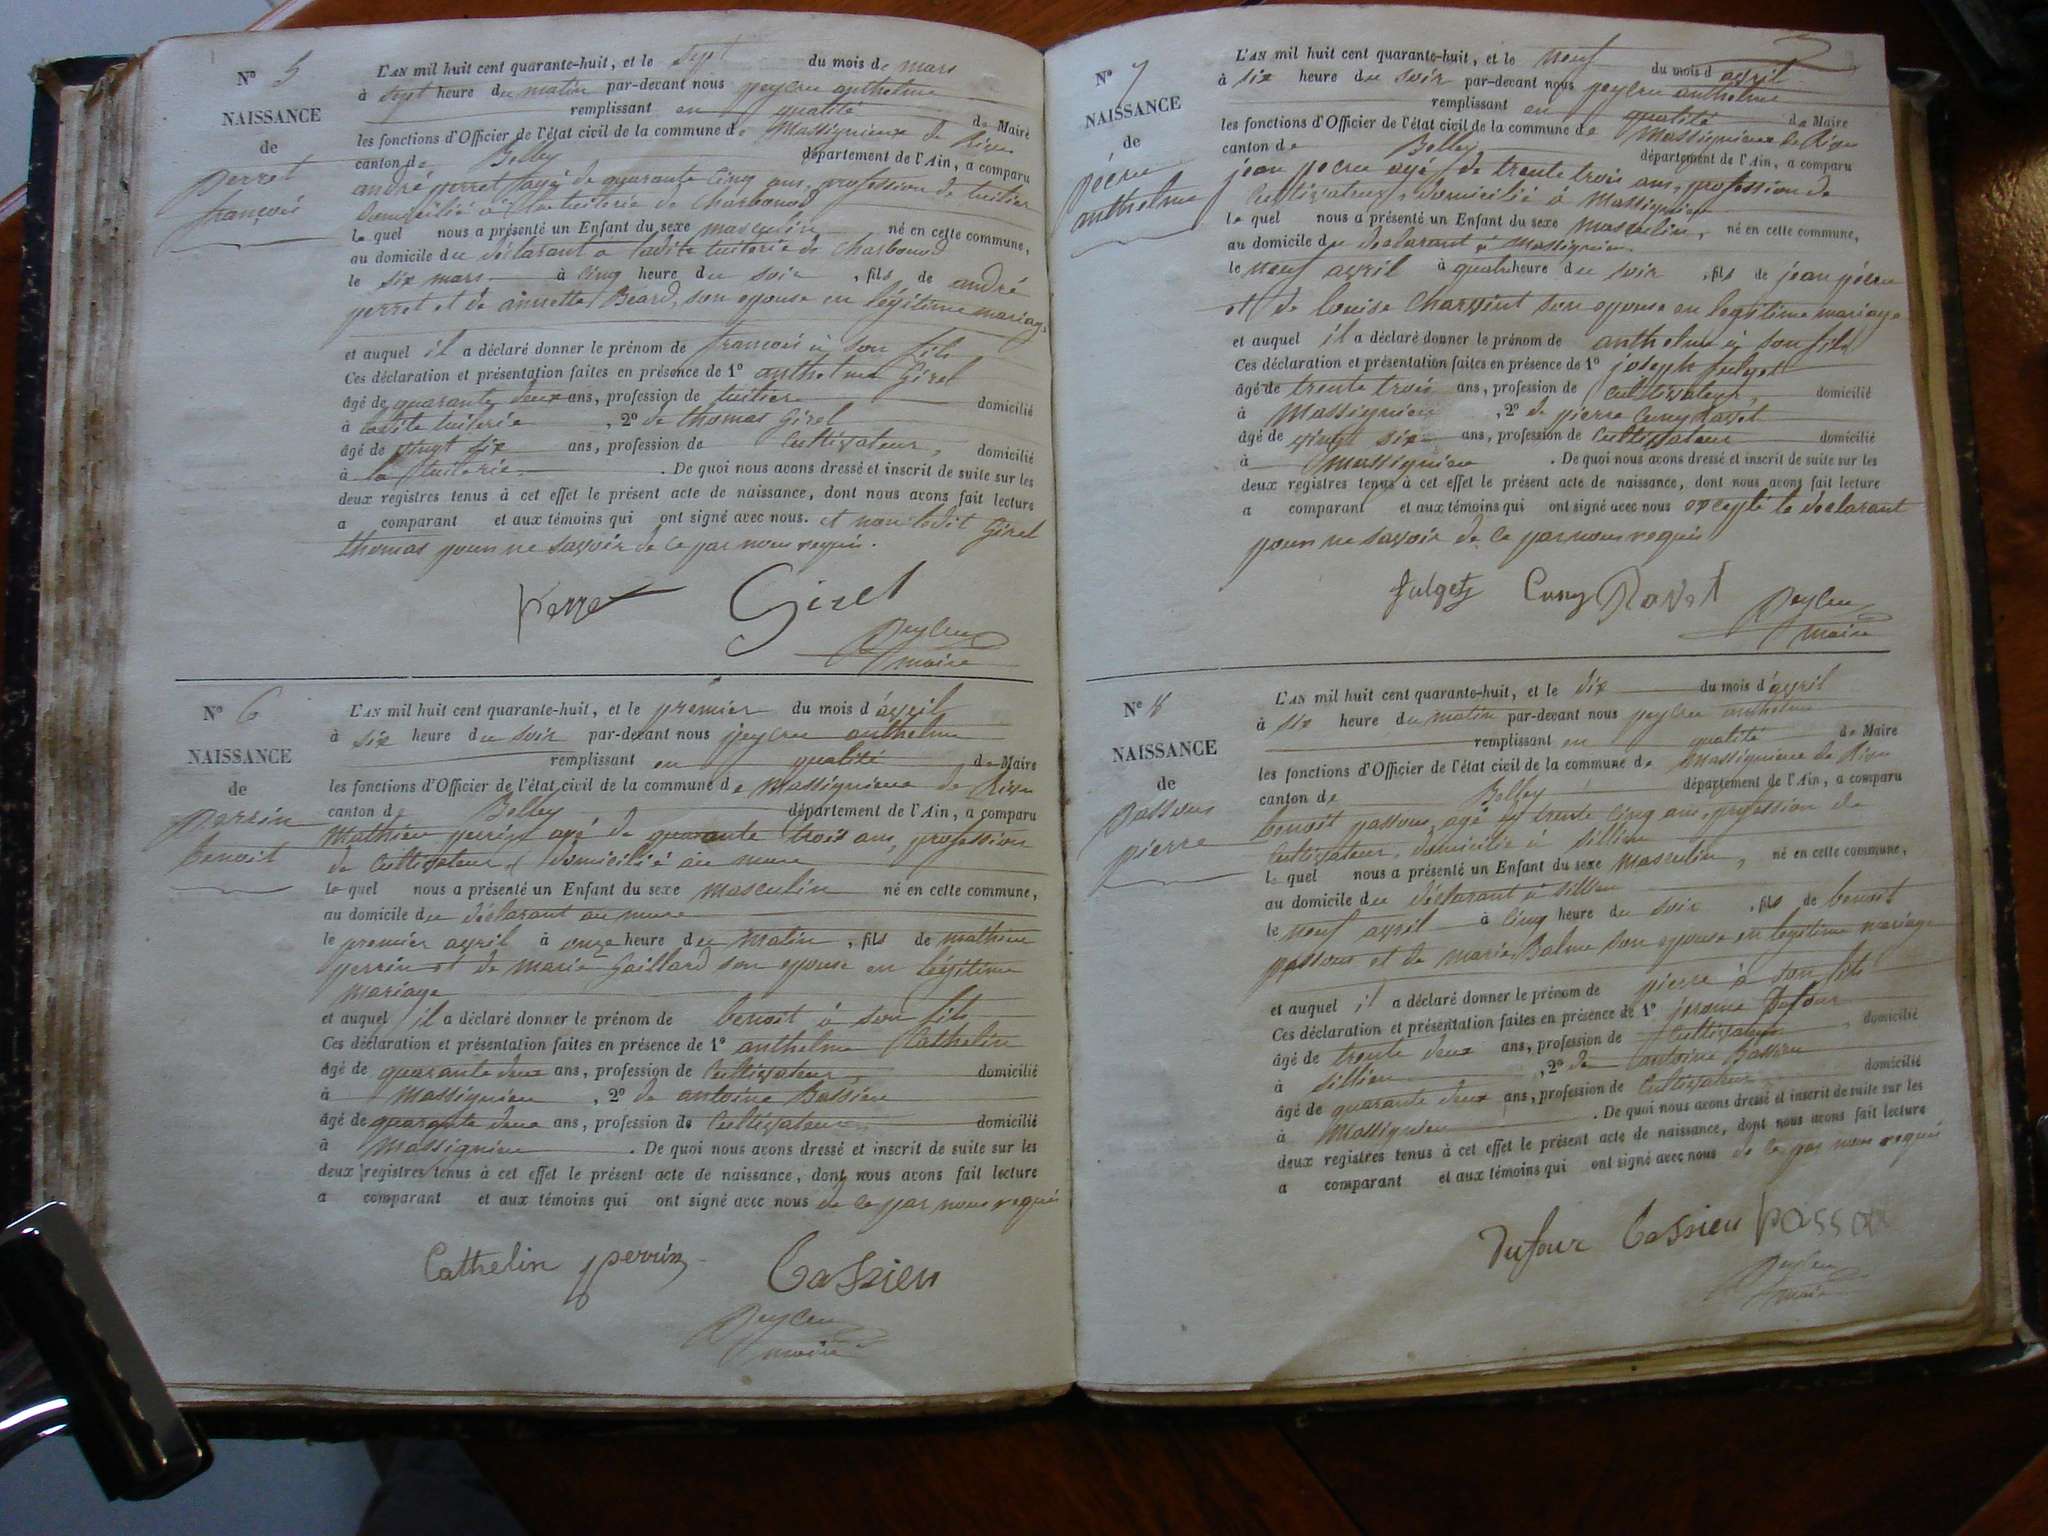 N° 5
NAISSANCE
de
perret
françois
L'AN mil huit cent quarante-huit, et le sept du mois de mars
à sept heure du matin par-devant nous peycru anthelme
remplissant en qualité de Maire
les fonctions d'Officier de l'état civil de la commune de Massignieux de Rives
canton de Belley département de l'Ain, a comparu
andré perret agé de quarante cinq ans, profession de tuilier
domicilié à la tuilerie de Charbonod
le quel nous a présenté un Enfant du sexe masculin né en cette commune,
au domicile du déclarant a ladite tuilerie de Charbonod
le six mars à cinq heure du soir, fils de andré
perret et de annette Béard, son epouse en légitime mariage
et auquel il a déclaré donner le prénom de françois à son fils
Ces déclaration et présentation faites en présence de 1° anthelme Girel
âgé de quarante deux ans, profession de tuilier domicilié
à ladite tuilerie, 2° de thomas Girel
âgé de vingt six ans, profession de Cultivateur, domicilié
à la tuilerie. De quoi nous avons dressé et inscrit de suite sur les
deux registres tenus à cet effet le présent acte de naissance, dont nous avons fait lecture
a comparant et aux témoins qui ont signé avec nous. et non ledit Girel
thomas pour ne savoir de ce par nous requis.
Perret Girel
Peycru
maire
N° 6
NAISSANCE
de
perrin
benoit
L'AN mil huit cent quarante-huit, et le premier du mois d'avril
à six heure du soir par-devant nous peycru anthelme
remplissant en qualité de Maire
les fonctions d'Officier de l'état civil de la commune de Massignieux de Rives
canton de Belley département de l'Ain, a comparu
Mathieu perrin agé de quarante trois ans, profession
de Cultivateur, domicilié au mure
le quel nous a présenté un Enfant du sexe masculin né en cette commune,
au domicile du déclarant au mure
le premier avril à onze heure du matin, fils de mathieu
perrin et de marie Gaillard son epouse en légitime
mariage
et auquel il a déclaré donner le prénom de benoit à son fils
Ces déclaration et présentation faites en présence de 1° anthelme Cathelin
âgé de quarante deux ans, profession de Cultivateur, domicilié
à Massignieu, 2° de antoine Bassieu
âgé de quarante deux ans, profession de Cultivateur domicilié
à Massignieu. De quoi nous avons dressé et inscrit de suite sur les
deux registres tenus à cet effet le présent acte de naissance, dont nous avons fait lecture
a comparant et aux témoins qui ont signé avec nous de ce par nous requis
Cathelin perrin Bassieu
Peycru
maire
N° 7
NAISSANCE
de
pécru
anthelme
L'AN mil huit cent quarante-huit, et le neuf du mois d'avril
à six heure du soir par-devant nous peycru anthelme
remplissant en qualité de Maire
les fonctions d'Officier de l'état civil de la commune de Massignieux de Rives
canton de Belley département de l'Ain, a comparu
jean pecru agé de trente trois ans, profession de
Cultivateur, domicilié à Massignieu
le quel nous a présenté un Enfant du sexe masculin, né en cette commune,
au domicile du déclarant à Massignieu
le neuf avril à quatre heure du soir, fils de jean pécru
et de louise Charvint son epouse en legitime mariage
et auquel il a déclaré donner le prénom de anthelme à son fils
Ces déclaration et présentation faites en présence de 1° joseph Julget
âgé de trente trois ans, profession de Cultivateur, domicilié
à Massignieu, 2° de pierre Cuny Ravet
âgé de vingt six ans, profession de Cultivateur domicilié
à Massignieu. De quoi nous avons dressé et inscrit de suite sur les
deux registres tenus à cet effet le présent acte de naissance, dont nous avons fait lecture
a comparant et aux témoins qui ont signé avec nous excepté le déclarant
pour ne savoir de ce par nous requis
Julget Cuny Ravet
Peycru
maire
N° 8
NAISSANCE
de
passous
pierre
L'AN mil huit cent quarante-huit, et le dix du mois d'avril
à six heure du matin par-devant nous peycru anthelme
remplissant en qualité de Maire
les fonctions d'Officier de l'état civil de la commune de Massignieux de Rives
canton de Belley département de l'Ain, a comparu
benoit passous agé de trente cinq ans, profession de
Cultivateur, domicilié à sillieu
le quel nous a présenté un Enfant du sexe masculin, né en cette commune,
au domicile du déclarant à sillieu
le neuf avril à cinq heure du soir, fils de benoit
passous et de marie Balme son epouse en legitime mariage
et auquel il a déclaré donner le prénom de pierre à son fils
Ces déclaration et présentation faites en présence de 1° jerome Dufour
âgé de trente deux ans, profession de Cultivateur, domicilié
à sillieu, 2° de antoine Bassieu
âgé de quarante deux ans, profession de Cultivateur domicilié
à Massignieu. De quoi nous avons dressé et inscrit de suite sur les
deux registres tenus à cet effet le présent acte de naissance, dont nous avons fait lecture
a comparant et aux témoins qui ont signé avec nous de ce par nous requis
Dufour Bassieu
Peycru
maire